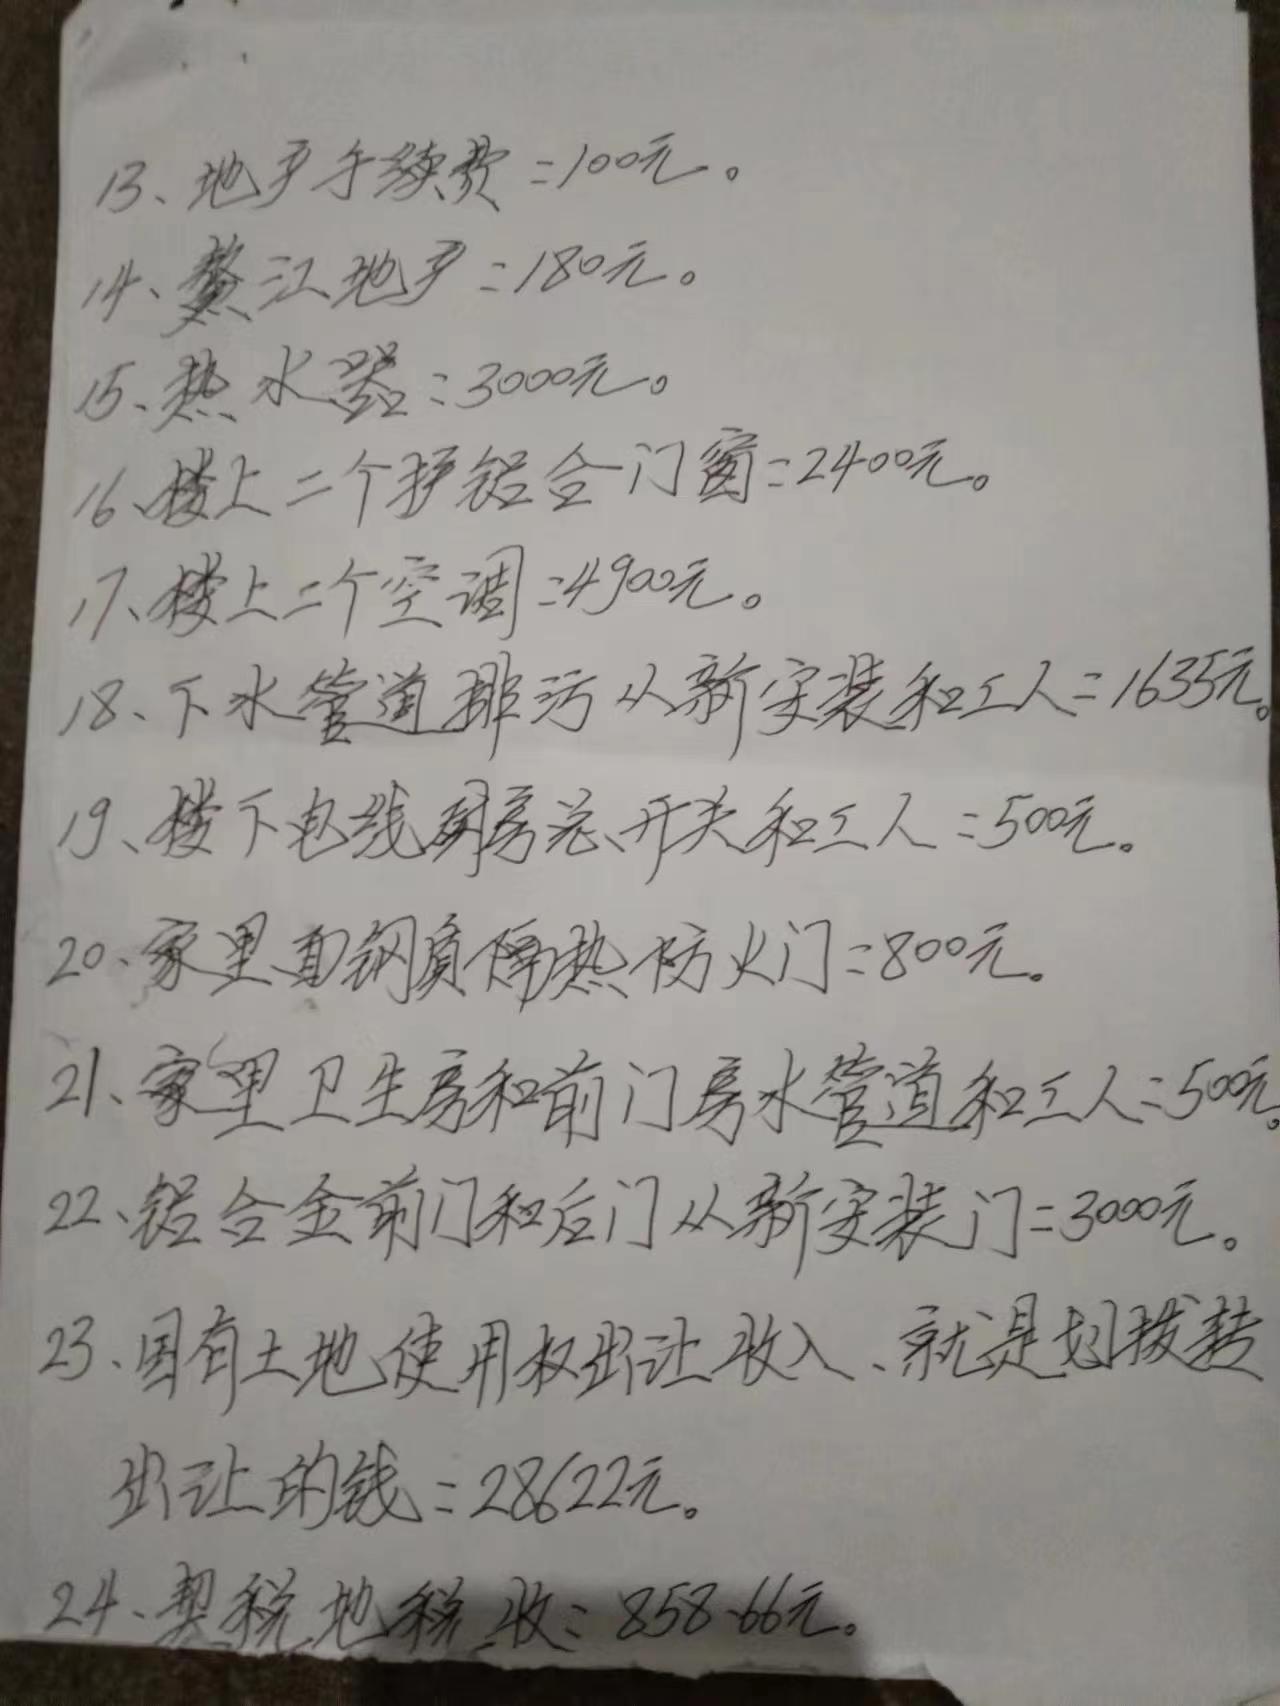 13、地产手续费=100元。
14、鳌江地产=180元。
15、热水器=3000元。
16、楼上二个护铝合门窗=2400元。
17、楼上二个空调=4900元。
18、下水管道排污从新安装和工人=1635元。
19、楼下电线厨房总开关和工人=500元。
20、家里面钢质隔热防火门=800元。
21、家里卫生房和前门房水管道和工人=500元。
22、铝合金前门和后门从新安装门=3000元。
23、国有土地使用权出让收入、就是划拨转
出让的钱=28622元。
24、契税地税收=858.66元。